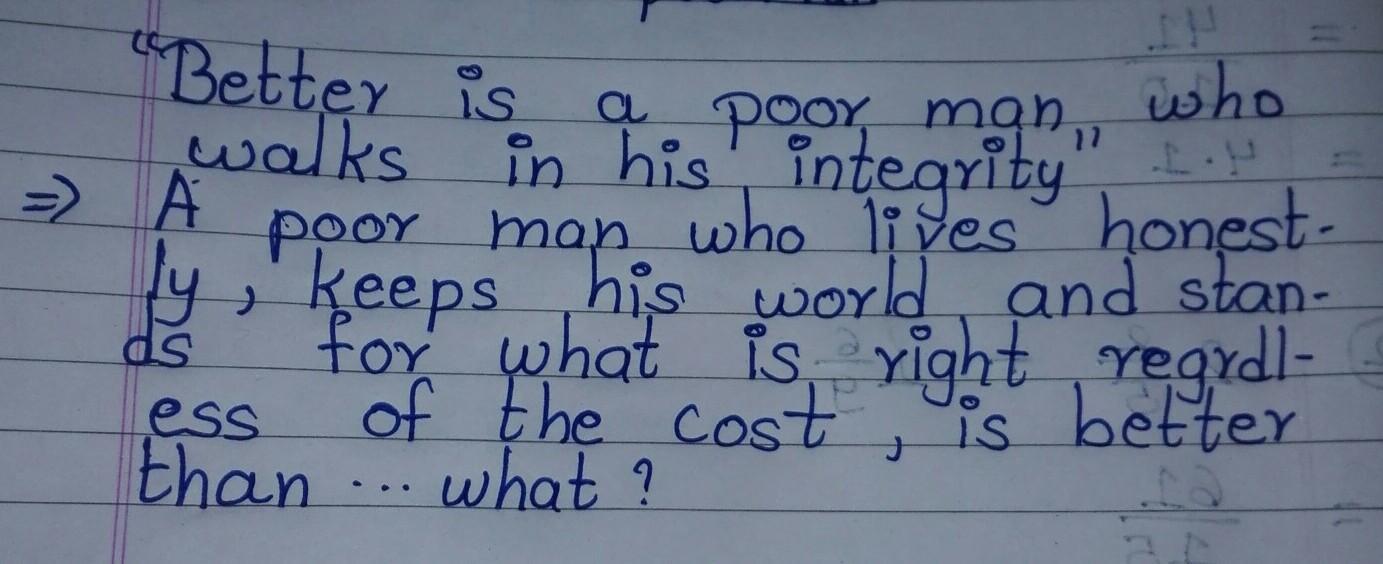 “Better is a poor man who
walks in his integrity”
⇒ A poor man who lives honest-
ly, keeps his world and stan-
ds for what is right regrdl-
ess of the cost, is better
than ... what?